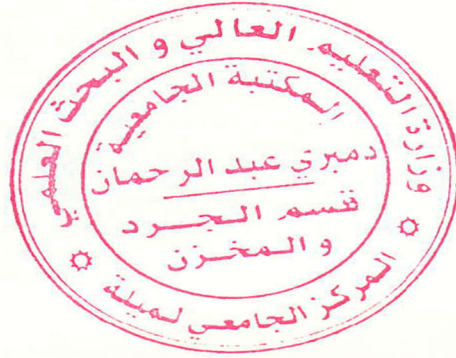 وزارة التعليم العالي و البحث العلمي
المكتبة الجامعية
دمبري عبد الرحمان
قسم الجرد
و المخزن
المركز الجامعي لميلة